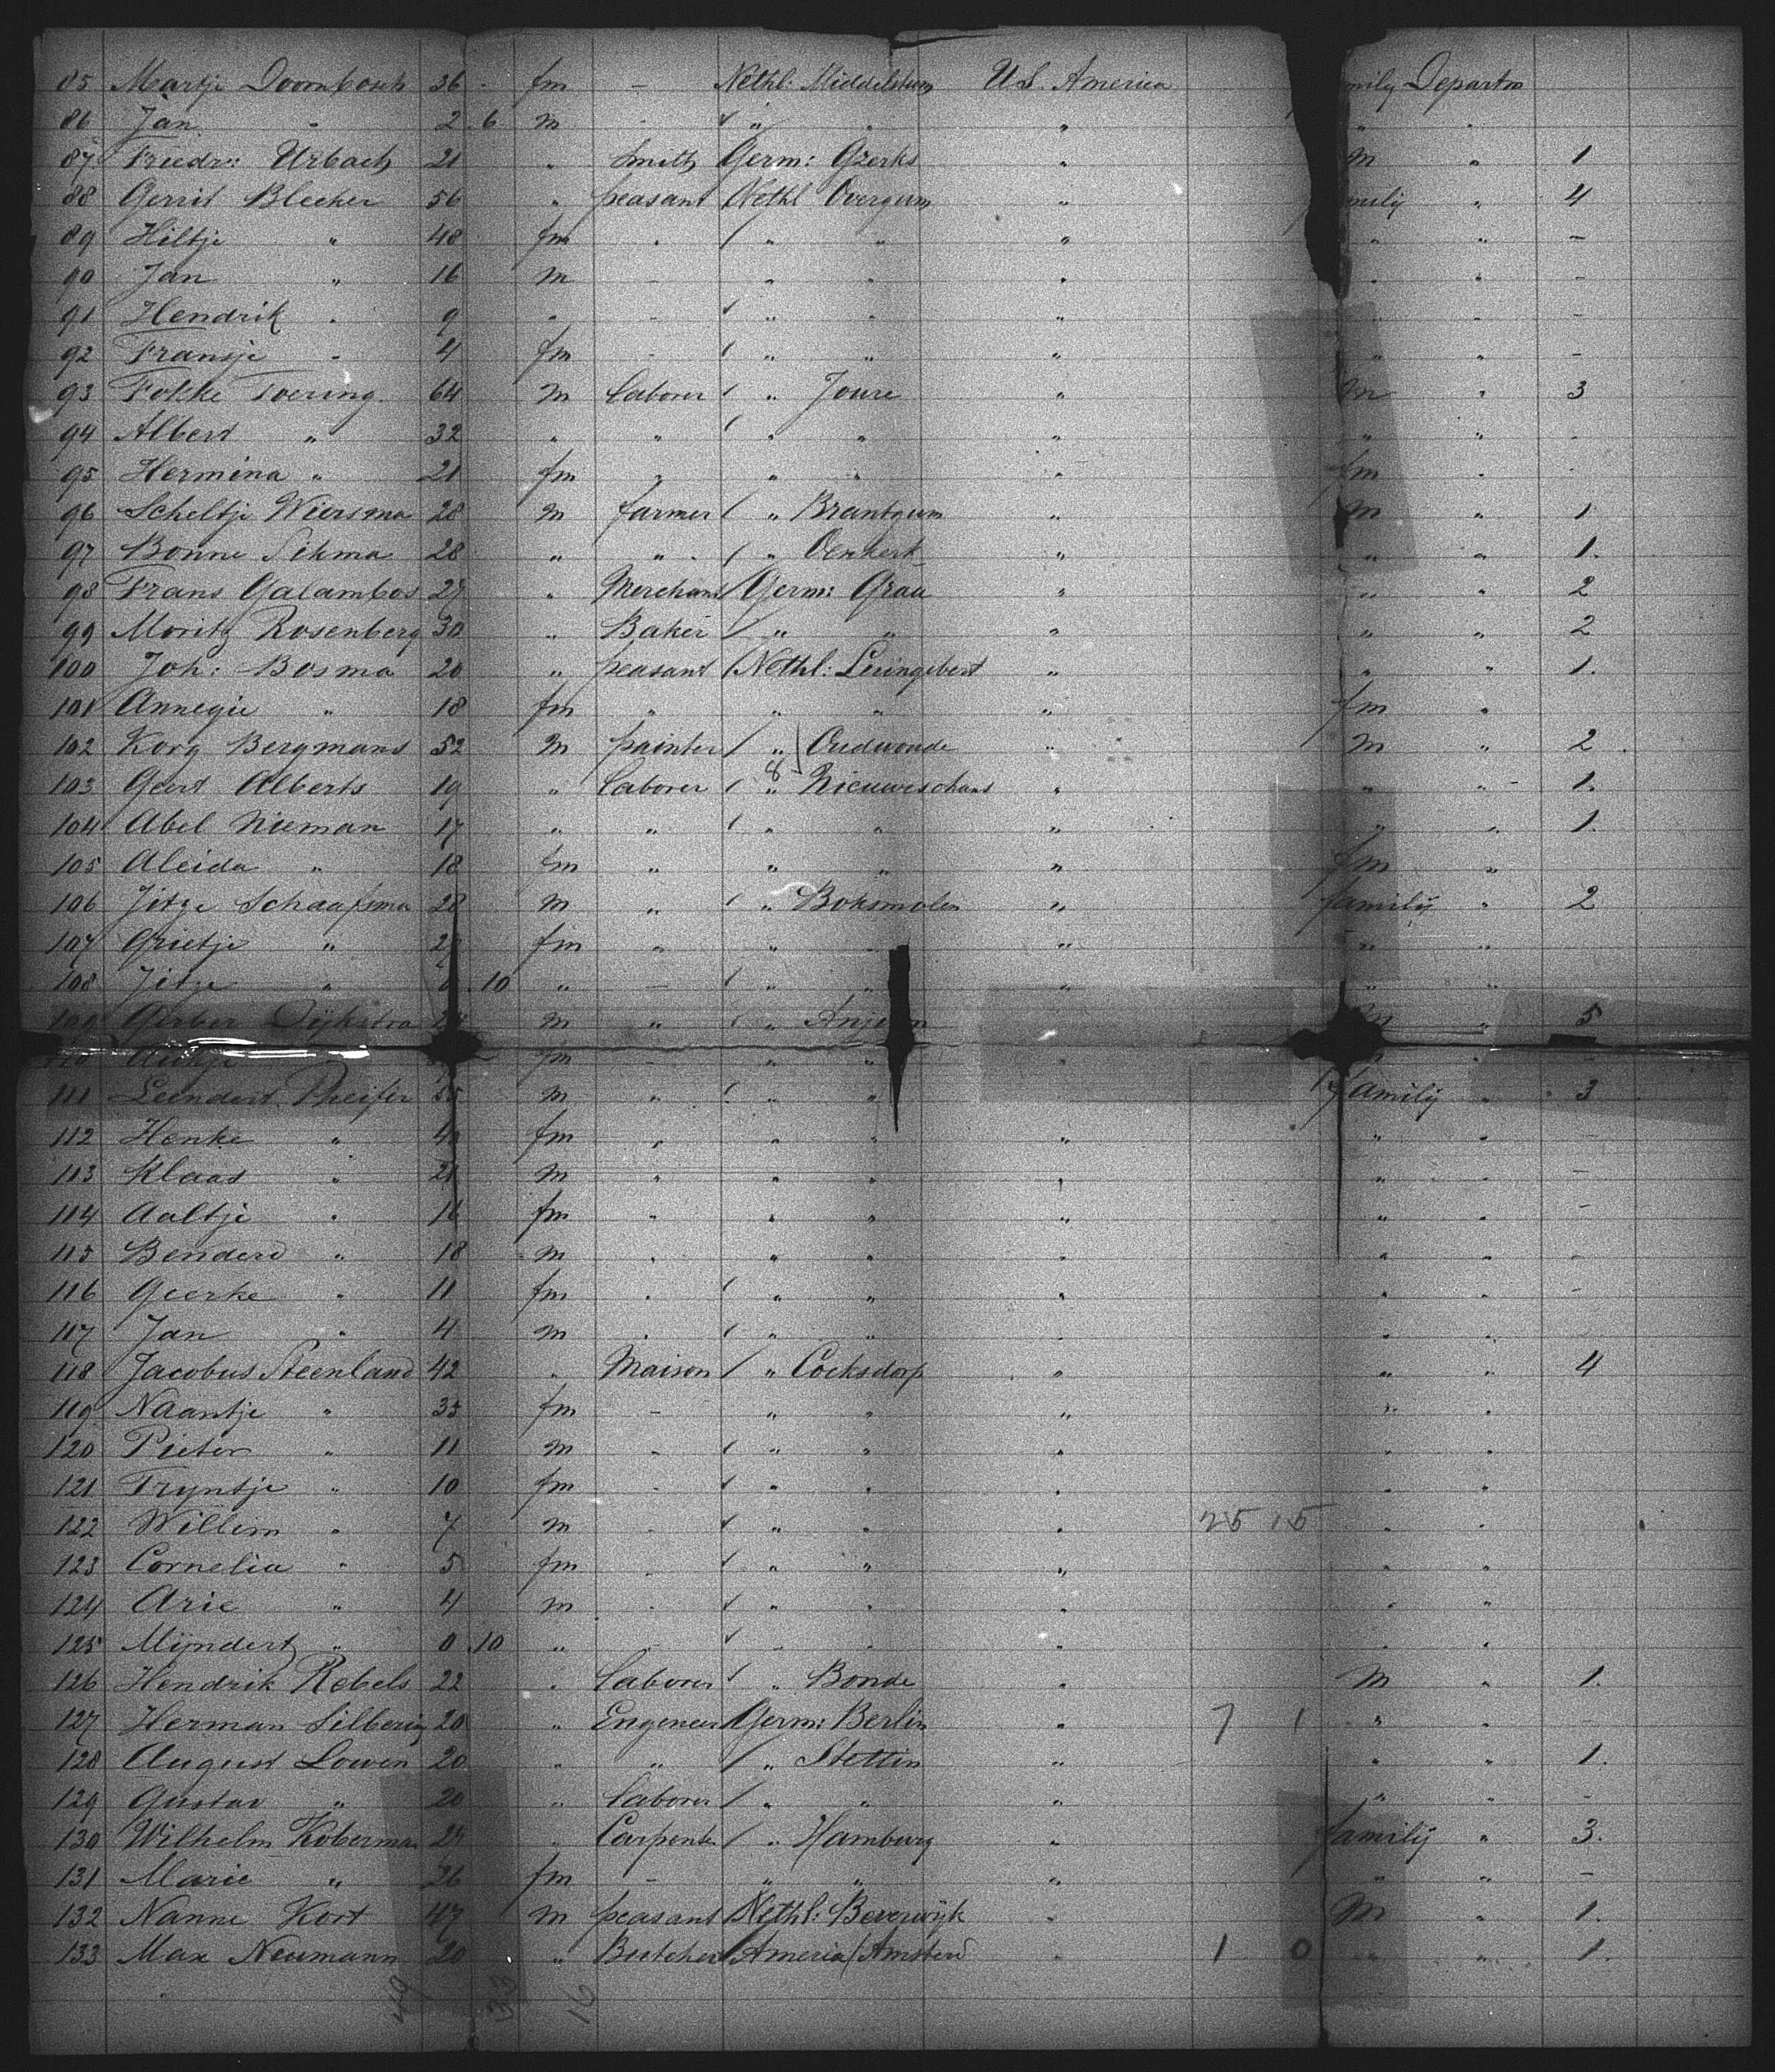 85 Martje Doornbosch 36 - fm - Nethl: Middelstum U.S. America mily Departm
86 Jan " 2 6 m - " " " " "
87 Friedr: Urbach 21 " Smith Germ: Gzerks " m " 1
88 Gerrit Bleeker 56 " peasant Nethl Overgum " mily " 4
89 Hiltje " 48 fm " " " " " " -
90 Jan " 16 m - " " " " " -
91 Hendrik " 9 " - " " " " " -
92 Fransje " 4 fm - " " " " " -
93 Fokke Toering 64 m Laborer " Joure " m " 3
94 Albert " 32 " " " " " " " -
95 Hermina " 21 fm " " " " fm "
96 Scheltje Wiersma 28 m farmer " Brantgum " m " 1
97 Bonne Sikma 28 " " " Oenkerk " " " 1.
98 Frans Galambos 27 " Merchant Germ: Grau " " " 2
99 Moritz Rosenberg 30 " Baker " " " " " 2
100 Joh: Bosma 20 " peasant Nethl: " " " 1.
101 Annegie " 18 fm " " " " fm "
102 Korg Bergmans 52 m painter " Oudwoude " m " 2
103 Geert Alberts 19 " Laborer 8 " Nieuweschans " " " 1.
104 Abel Nieman 17 " " " " " " " 1.
105 Aleida " 18 fm " " " " fm "
106 Jitze Schaafsma 28 m " " Boksmolen " family " 2
107 Grietje " 27 fm " " " " "
108 Jitze " 0 10 " - " " " " "
109 Gerben Dijkstra m " " Anjum m " 5
110 Antje " fm - " " " " -
111 Leendert Pheifer 55 m " " " family " 3
112 Henke " fm " " " " " " -
113 Klaas " 21 m " " " " " " -
114 Aaltje " 16 fm " " " " " " -
115 Benderd " 18 m " " " " " " -
116 Geerke " 11 fm " " " " " " -
117 Jan " 4 m " " " " " " -
118 Jacobus Steenland 42 " Maison " Cocksdorp " " " 4
119 Naantje " 35 fm - " " " " "
120 Pieter " 11 m - " " " " "
121 Tryntje " 10 fm - " " " " "
122 Willim " 7 m - " " " 25 15 " "
123 Cornelia " 5 fm - " " " " "
124 Arie " 4 m - " " " " "
125 Mijndert " 0 10 " - " " " " "
126 Hendrik Rebels 22 " Laborer " Bonde " m " 1.
127 Herman Silbering 20 " Engeneer Germ: Berlin " 7 1 " " -
128 August Lowen 20 " " " Stettin " " " 1.
129 Gustav " 20 " Laborer " " " " " -
130 Wilhelm Koberman 27 " Carpenter " Hamburg " family " 3.
131 Marie " 26 fm - " " " " " -
132 Nanne Kort 47 m peasant Nethl: Beverwijk " m " 1.
133 Max Neumann 20 " Butcher Ameria/Amsterd " 1 0 " " 1.
133 16